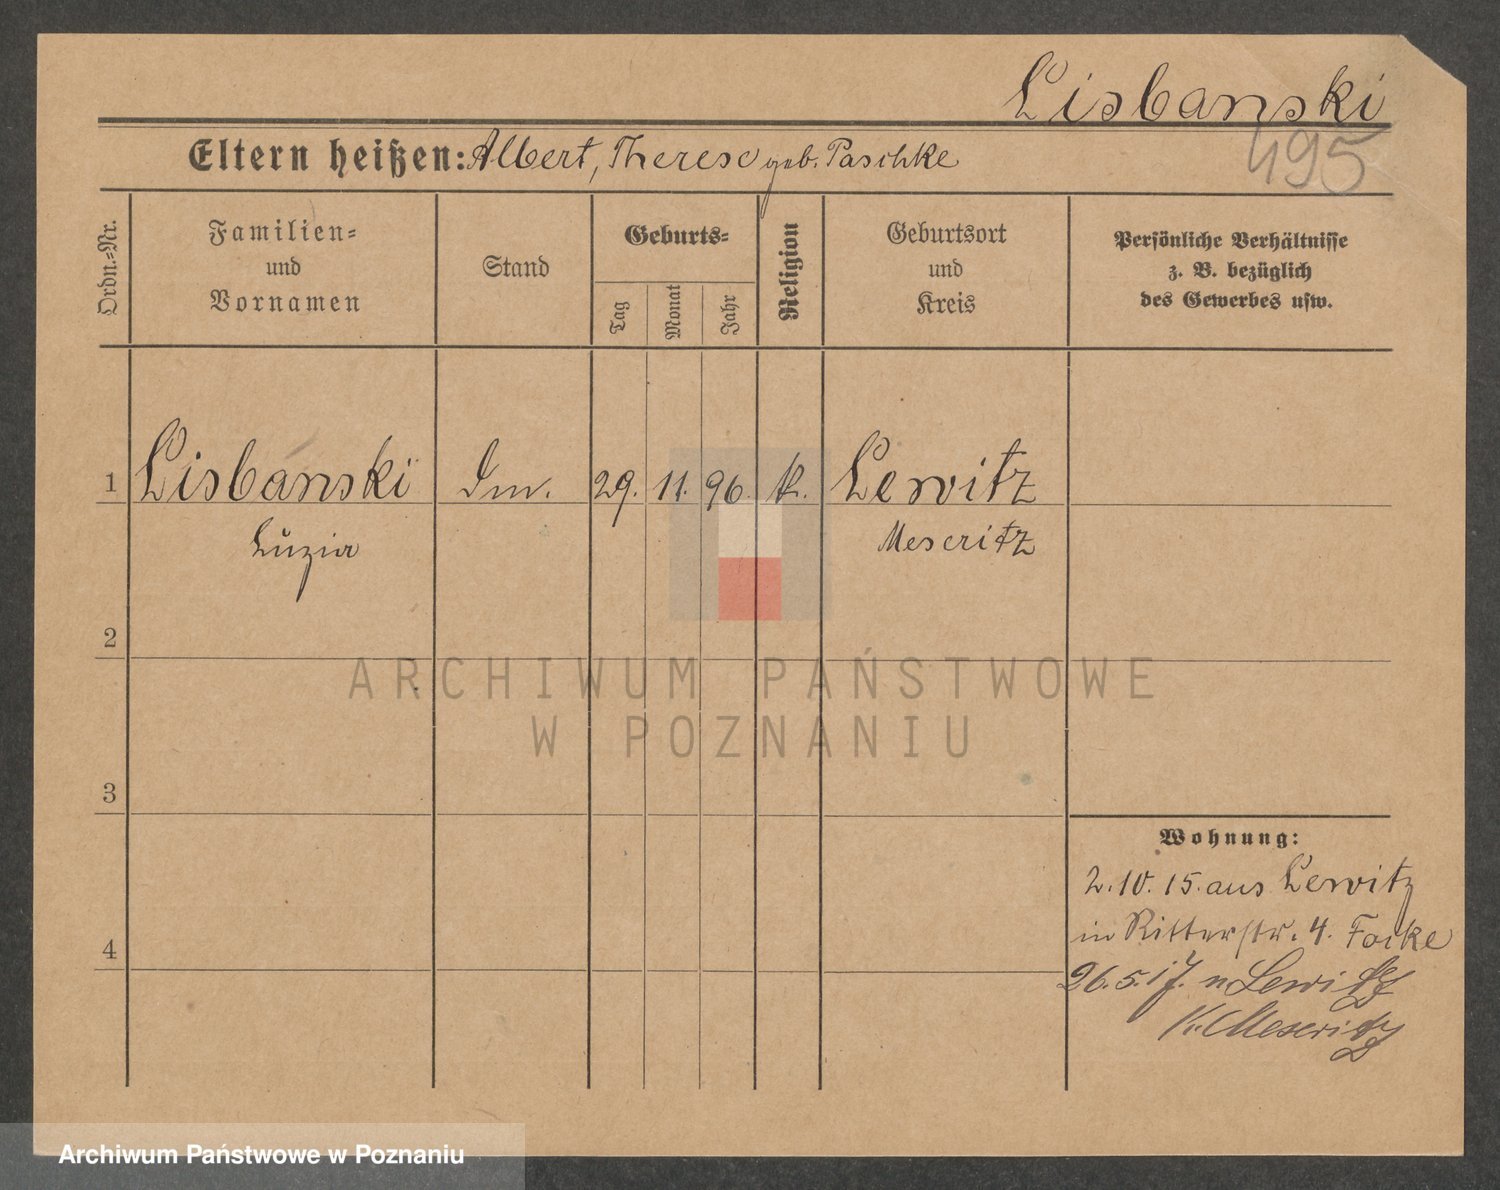 Lisbanski
495
Eltern heißen: Albert, Therese geb. Paschke
Ordn.=Nr.
Familien=
und
Vornamen
Stand
Geburts=
Tag
Monat
Jahr
Religion
Geburtsort
und
Kreis
Persönliche Verhältnisse
z. B. bezüglich
des Gewerbes usw.
1 Lisbanski 29. 11. 96. k. Lewitz
Luzia Meseritz
2
ARCHIWUM PAŃSTWOWE
W POZNANIU
3
Wohnung:
2.10.15. aus Lewitz
in Ritterstr. 4.
4
26.5.17. n Lewitz
K. Meseritz
Archiwum Państwowe w Poznaniu